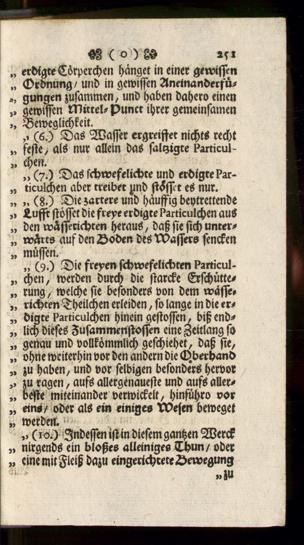 ( 0 ) 251
„ erdigte Cörperchen hänget in einer gewissen
„ Ordnung/ und in gewissen Aneinanderfü-
„ gungen zusammen, und haben dahero einen
„ gewissen Mittel-Punct ihrer gemeinsamen
„ Beweglichkeit.
„ (6.) Das Wasser ergreiffet nichts recht
„ feste, als nur allein das saltzigte Particul-
„ chen.
„ (7.) Das schwefelichte und erdigte Par-
„ ticulchen aber treibet und stösset es nur.
„ (8.) Die zartere und häuffig beytrettende
„ Lufft stösset die freye erdigte Particulchen aus
„ den wässerichten heraus, daß sie sich unter-
„ wärts auf den Boden des Wassers sencken
„ müssen.
„ (9.) Die freyen schwefelichten Particul-
„ chen, werden durch die starcke Erschütte-
„ rung, welche sie besonders von dem wässe-
„ richten Theilchen erleiden, so lange in die er-
„ digte Particulchen hinein gestossen, biß end-
„ lich dieses Zusammenstossen eine Zeitlang so
„ genau und vollkömmlich geschiehet, daß sie,
„ ohne weiterhin vor den andern die Oberhand
„ zu haben, und vor selbigen besonders hervor
„ zu ragen, aufs allergenaueste und aufs aller-
„ beste miteinander verwickelt, hinführo vor
„ eins/ oder als ein einiges Wesen beweget
„ werden.
„ (10.) Indessen ist in diesem gantzen Werck
„ nirgends ein bloßes alleiniges Thun/ oder
„ eine mit Fleiß dazu eingerichtete Bewegung
„ zu